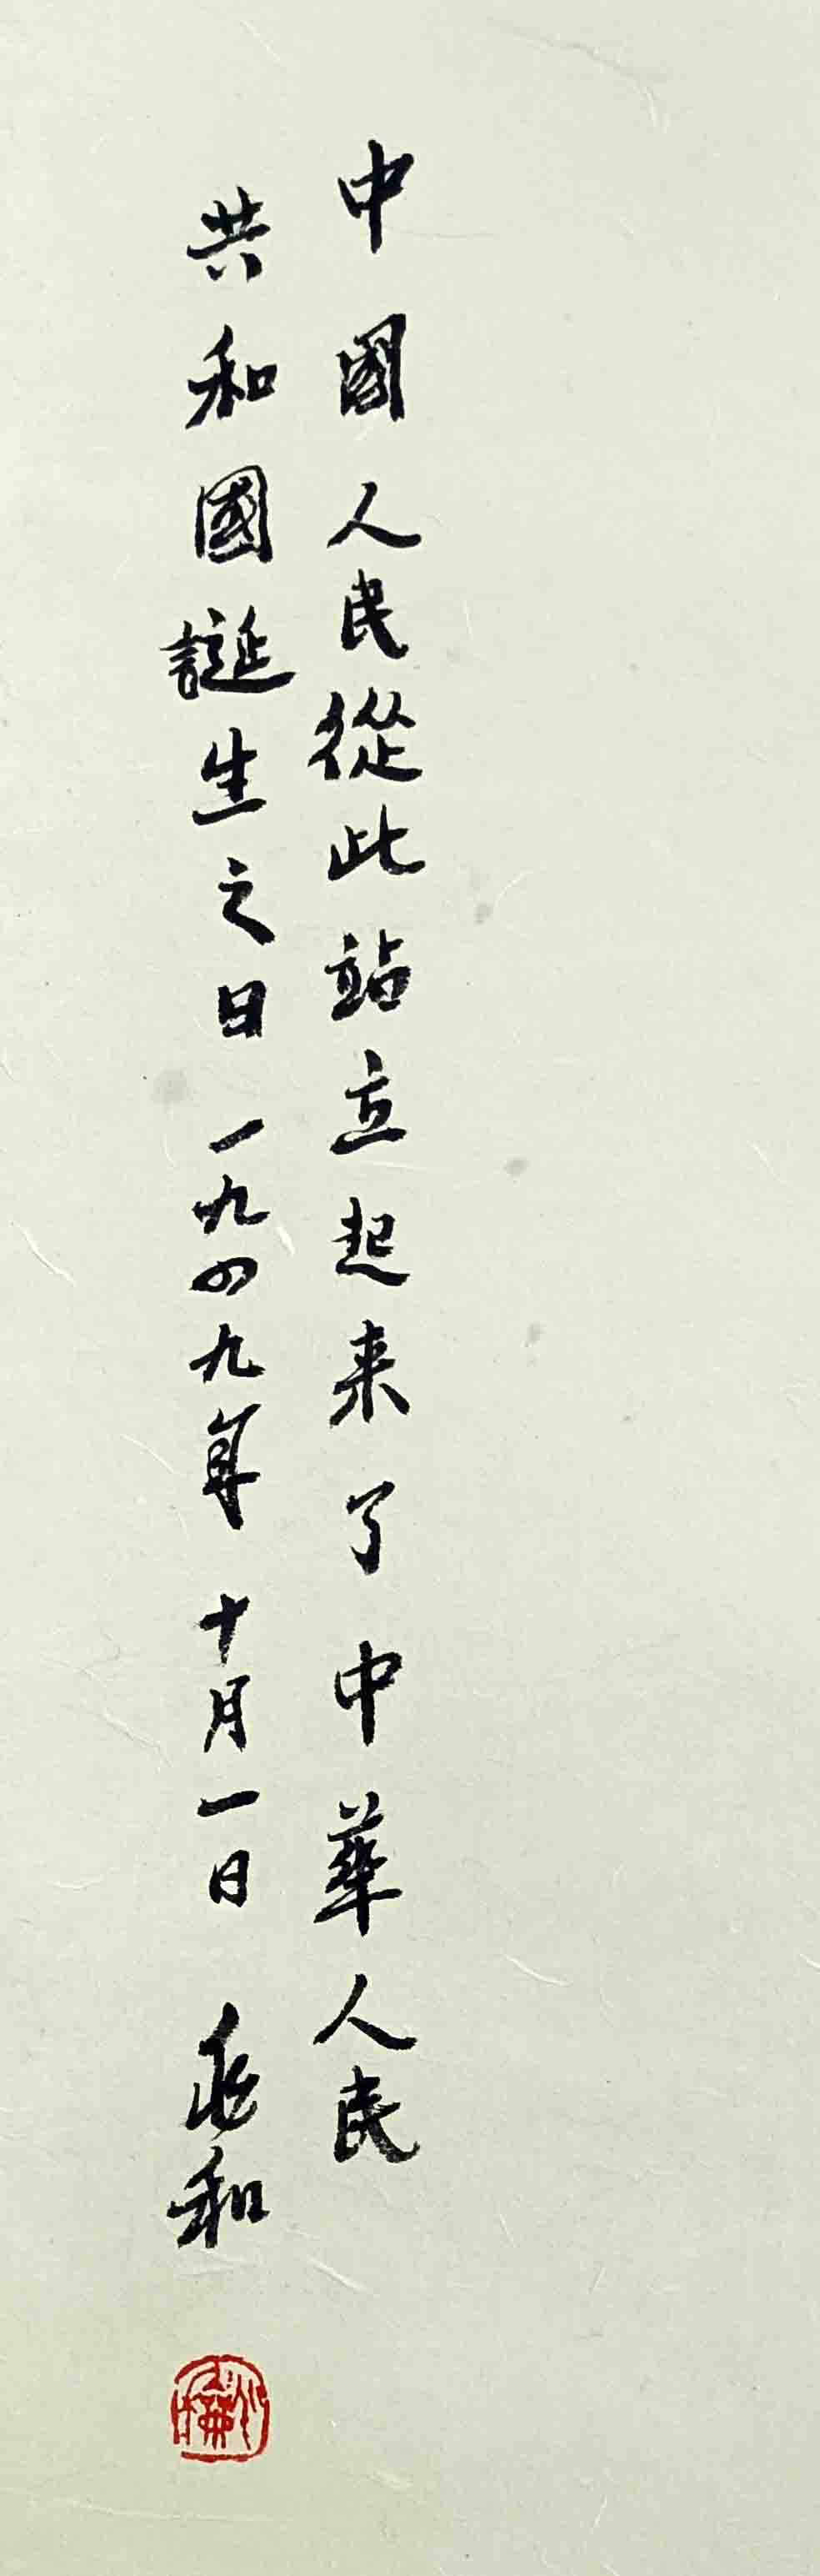 中國人民從此站立起来了中華人民
共和國誕生之日一九四九年十月一日 兆和